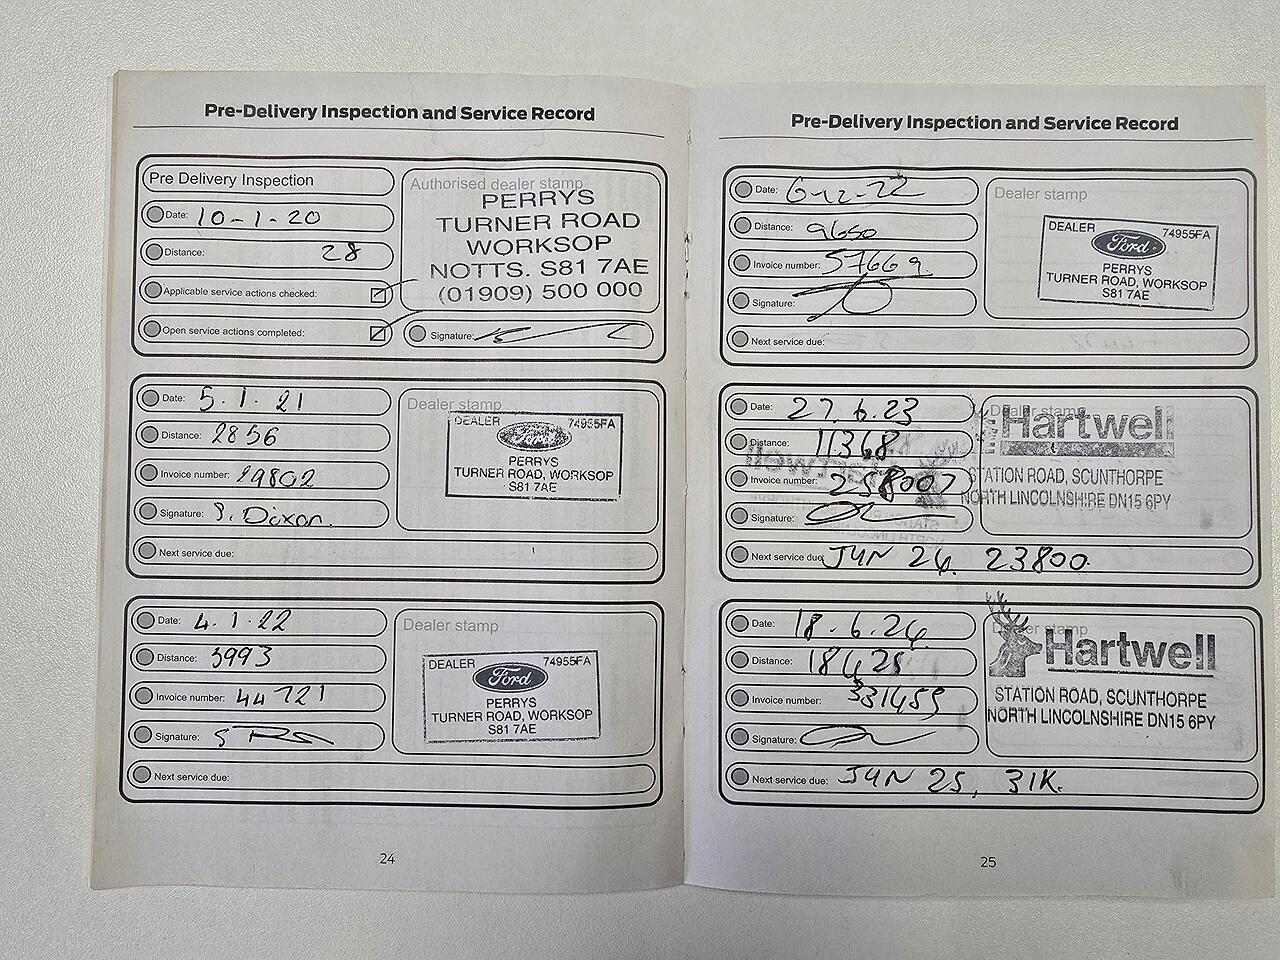 Pre-Delivery Inspection and Service Record
Pre Delivery Inspection
Date: 10-1-20
Distance: 28
Applicable service actions checked:
Open service actions completed:
Authorised dealer stamp
PERRYS
TURNER ROAD
WORKSOP
NOTTS. S81 7AE
(01909) 500 000
Signature:
Date: 5.1.21
Distance: 2856
Invoice number: 29802
Signature: S. Dixon.
Next service due:
Dealer stamp
DEALER 74955FA
Ford
PERRYS
TURNER ROAD, WORKSOP
S81 7AE
Date: 4.1.22
Distance: 3993
Invoice number: 44721
Signature:
Next service due:
Dealer stamp
DEALER 74955FA
Ford
PERRYS
TURNER ROAD, WORKSOP
S81 7AE
24
Pre-Delivery Inspection and Service Record
Date: 6-12-22
Distance: 9650
Invoice number: 57669
Signature:
Next service due:
Dealer stamp
DEALER 74955FA
Ford
PERRYS
TURNER ROAD, WORKSOP
S81 7AE
Date: 27.6.23
Distance: 11368
Invoice number: 258007
Signature:
Next service due: JUN 24. 23800.
Dealer stamp
Hartwell
STATION ROAD, SCUNTHORPE
NORTH LINCOLNSHIRE DN15 6PY
Date: 18.6.24
Distance: 18425
Invoice number: 331459
Signature:
Next service due: JUN 25, 31K.
Dealer stamp
Hartwell
STATION ROAD, SCUNTHORPE
NORTH LINCOLNSHIRE DN15 6PY
25